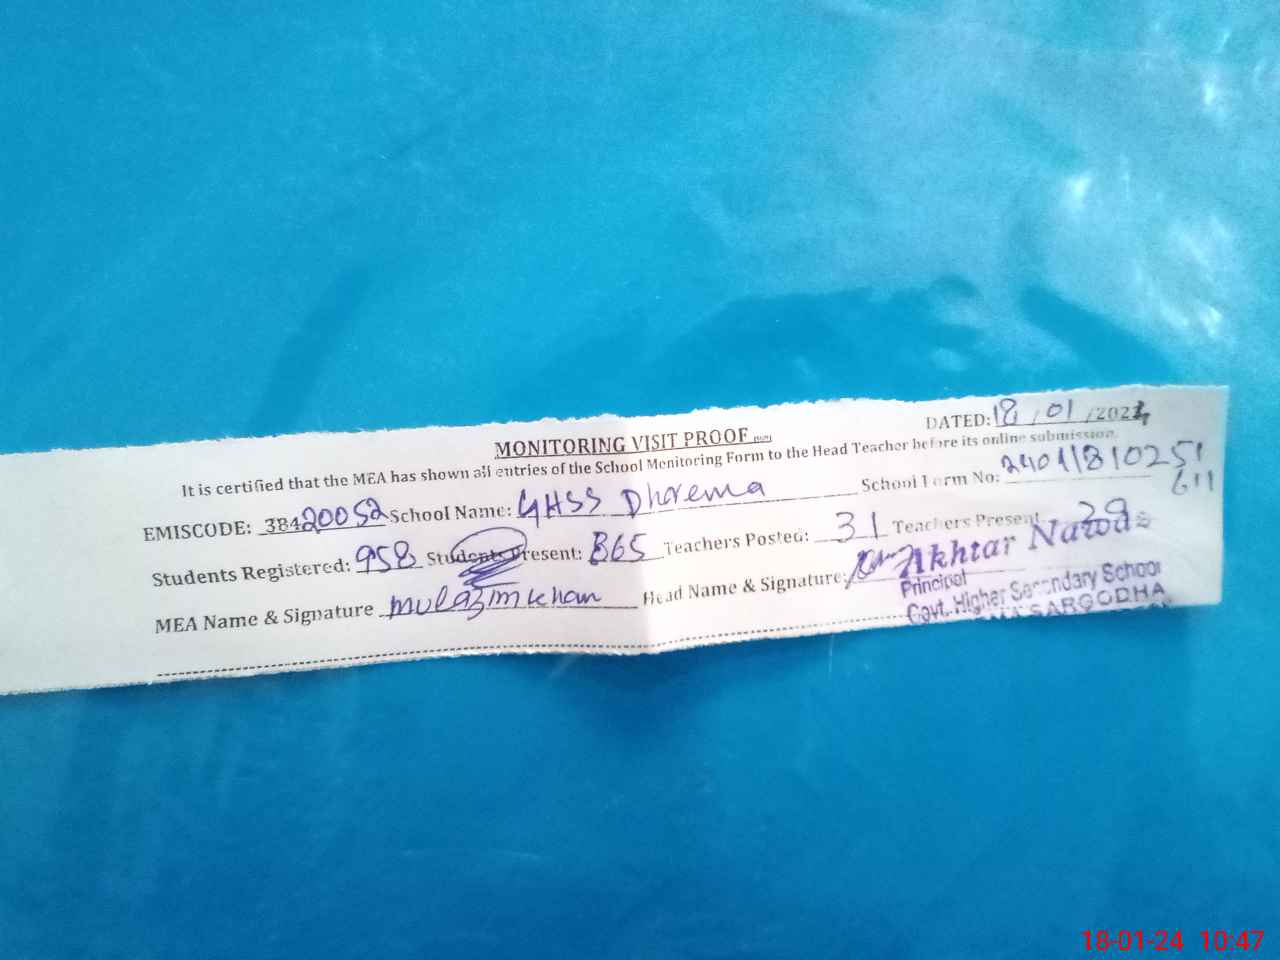 DATED: 18/01/2024
MONITORING VISIT PROOF
It is certified that the MEA has shown all entries of the School Monitoring Form to the Head Teacher before its online submission.
EMISCODE: 38420052 School Name: GHSS Dhrema School Form No: 24011810251
611
Students Registered: 958 Students Present: 865 Teachers Posted: 31 Teachers Present 29
MEA Name & Signature Mulazim Khan Head Name & Signature: Akhtar Nawaz
Principal
Govt. Higher Secondary School
SARGODHA
18-01-24 10:47